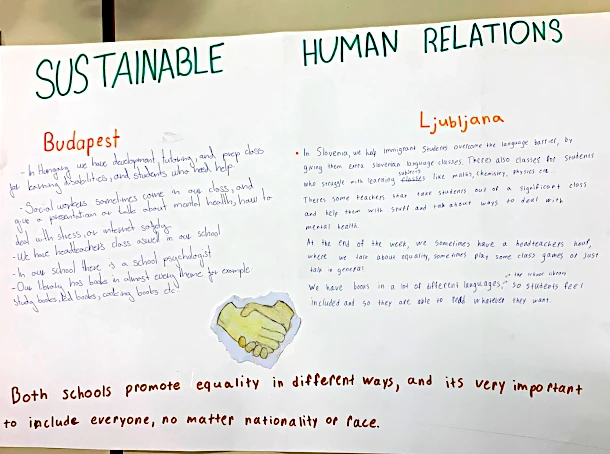 SUSTAINABLE HUMAN RELATIONS
Budapest
- In Hungary we have development, tutoring, and prep class
for learning disabilities, and students who need help
- Social workers sometimes come in our class, and
give a presentation or talk about mental health, how to
deal with stress, or internet safety
- We have headteachers class as well in our school
- In our school there is a school psychologist
- Our library has books in almost every theme for example
study books, books, cooking books etc
Ljubljana
• In Slovenia, we help immigrant students overcome the language barrier, by
giving them extra slovenian language classes. Theres also classes for students
who struggle with learning subjects like maths, chemistry, physics etc.
Theres some teachers that take students out of a significant class
and help them with stuff and talk about ways to deal with
mental health.
At the end of the week, we sometimes have a headteachers hour,
where we talk about equality, sometimes play some class games or just
talk in general.
We have books in a lot of different languages, in the school library so students feel
included and so they are able to read whatever they want.
Both schools promote equality in different ways, and its very important
to include everyone, no matter nationality or race.